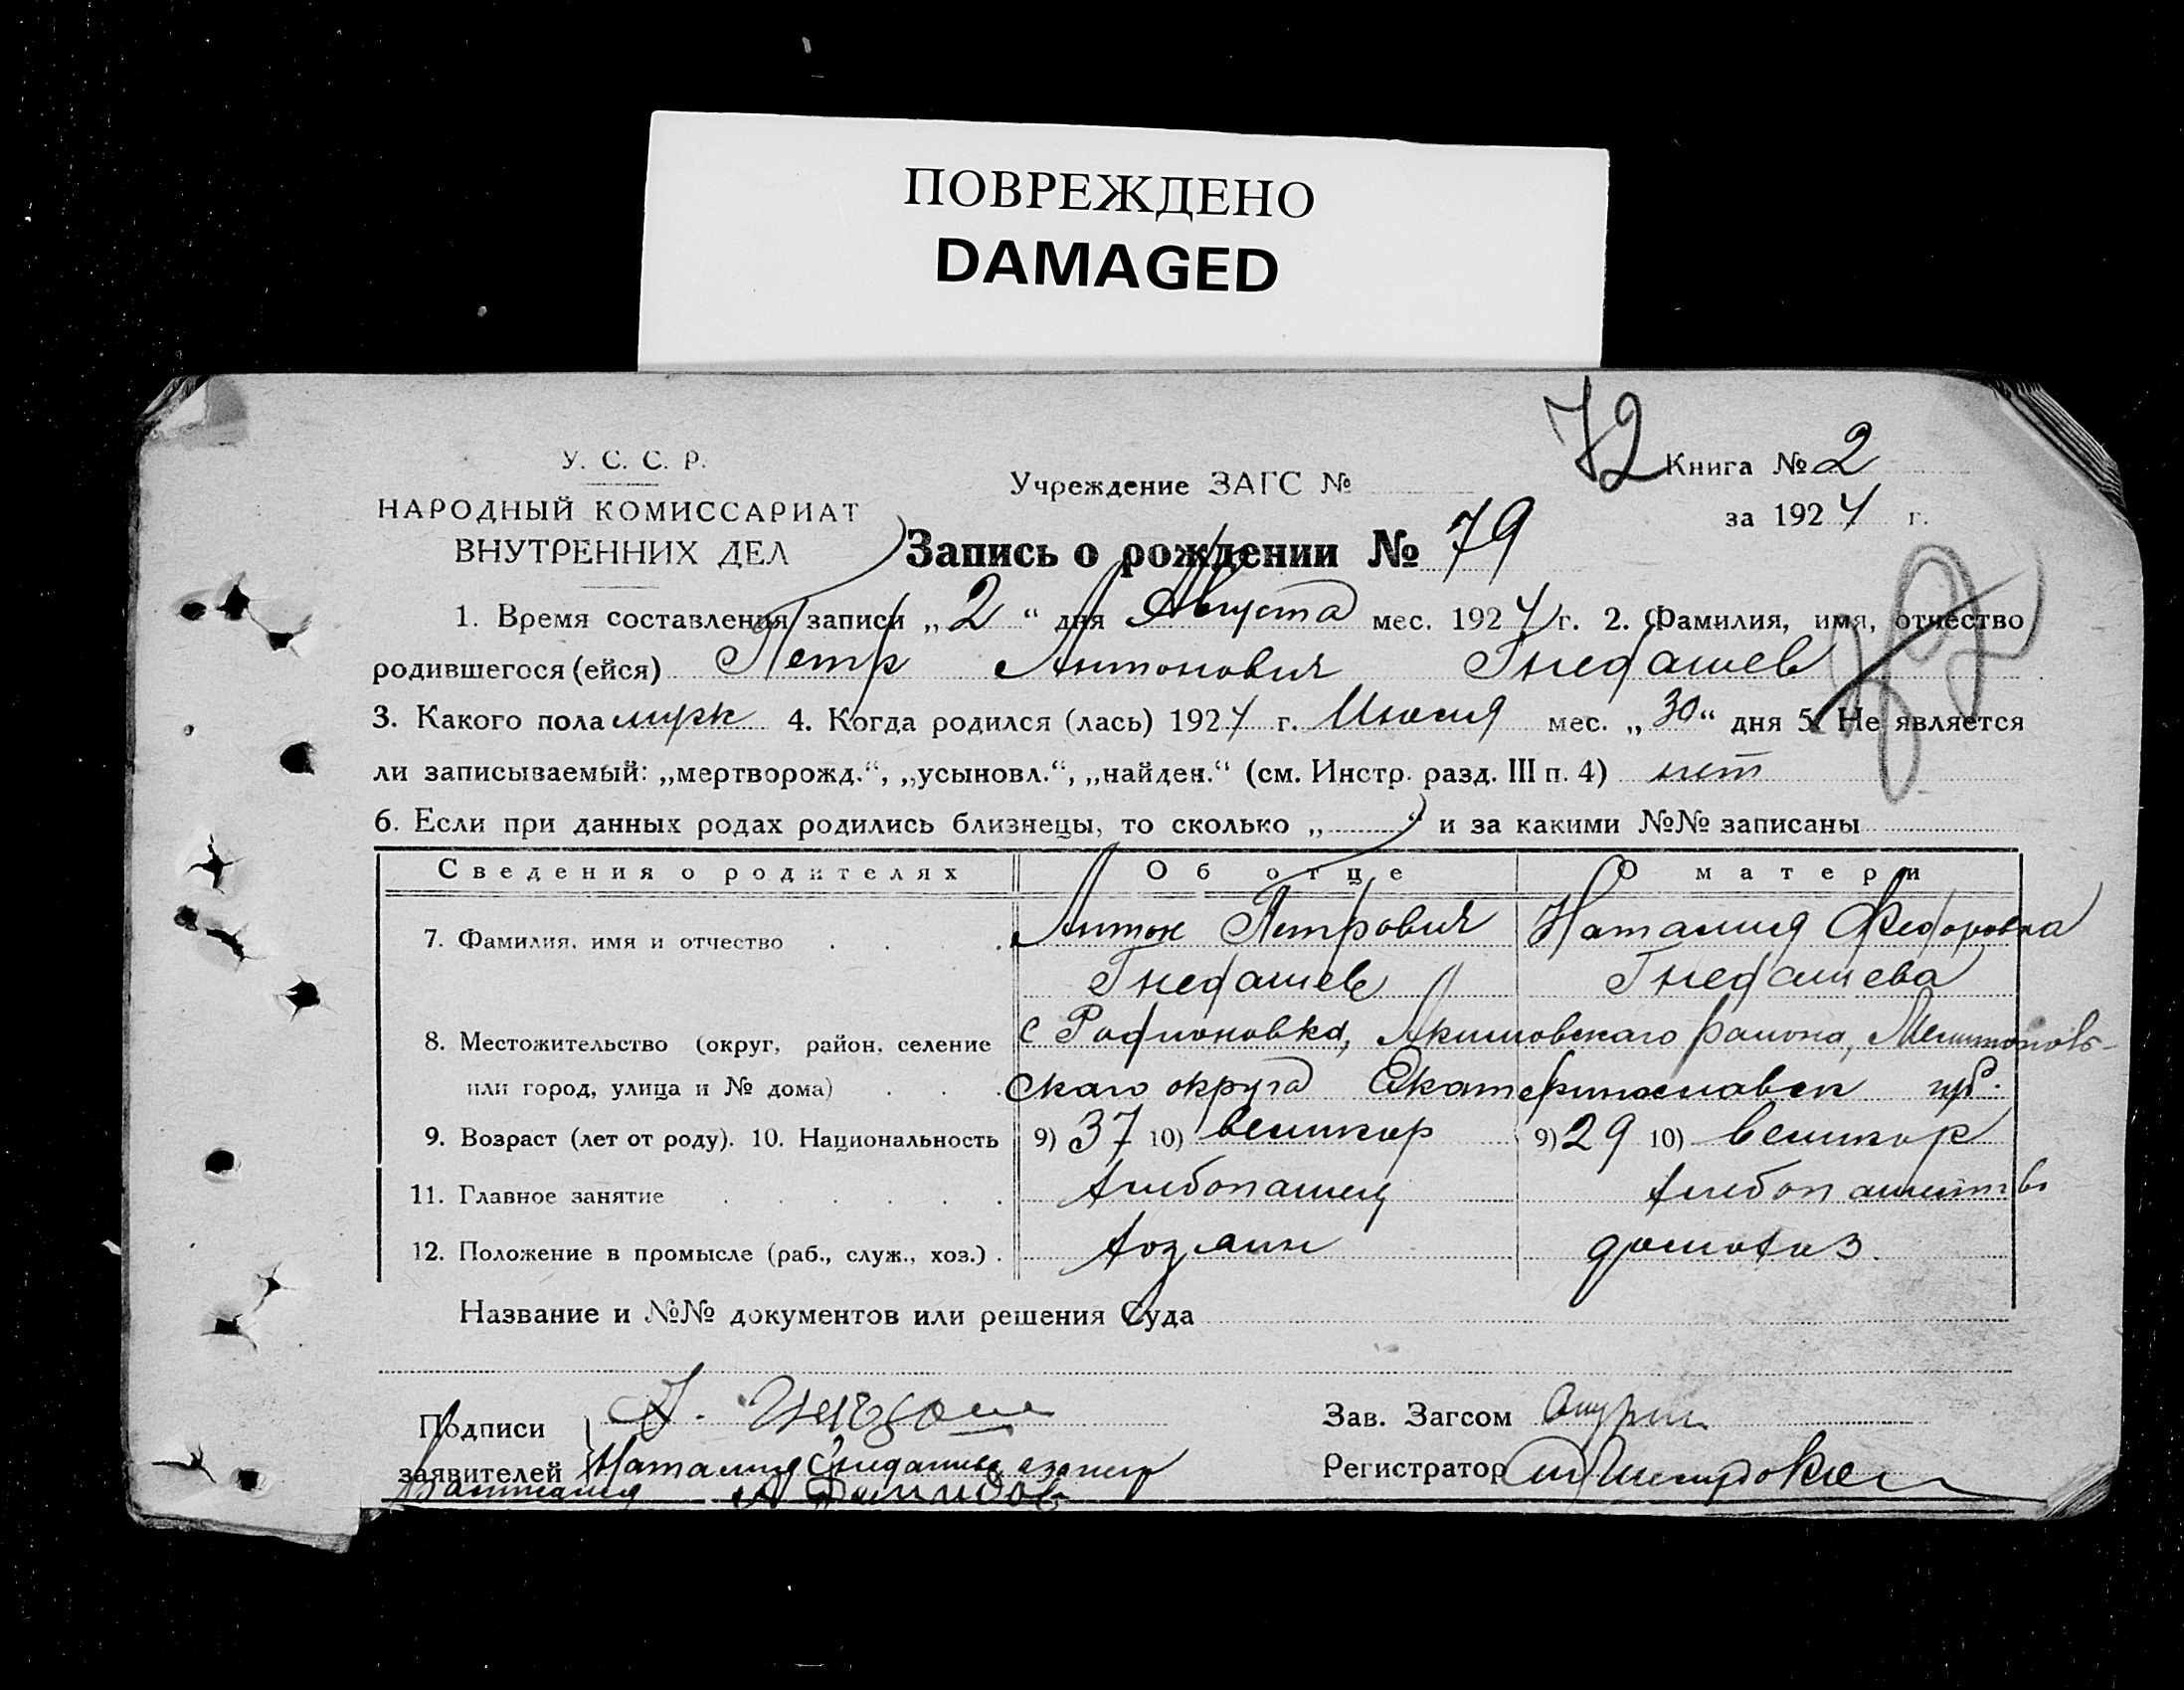 ПОВРЕЖДЕНО
DAMAGED
72
У. С. С. Р.
НАРОДНЫЙ КОМИССАРИАТ
ВНУТРЕННИХ ДЕЛ
Учреждение ЗАГС №
Книга № 2
за 1924 г.
Запись о рождении № 79
1. Время составления записи „ 2 “ дня Августа мес. 1924 г. 2. Фамилия, имя, отчество
родившегося (ейся) Петр Антонович Гнедашев
3. Какого пола мужк 4. Когда родился (лась) 1924 г. Июля мес. „ 30 “ дня 5. Не является
ли записываемый: „мертворожд.“, „усыновл.“, „найден.“ (см. Инстр. разд. III п. 4) нет
6. Если при данных родах родились близнецы, то сколько „ “ и за какими №№ записаны
Сведения о родителях Об отце О матери
7. Фамилия, имя и отчество Антон Петрович Наталия Федоровна
Гнедашев Гнедашева
8. Местожительство (округ, район, селение с Родионовка, Акимовскаго района, Мелитополь-
или город, улица и № дома) скаго округа Екатеринославск губ.
9. Возраст (лет от роду). 10. Национальность 9) 37 10) великор 9) 29 10) великор
11. Главное занятие хлебопашец хлебопашеств
12. Положение в промысле (раб., служ., хоз.) хозяин домохоз.
Название и №№ документов или решения Суда
Подписи А.
заявителей Наталия Гнедашева
Зав. Загсом
Регистратор